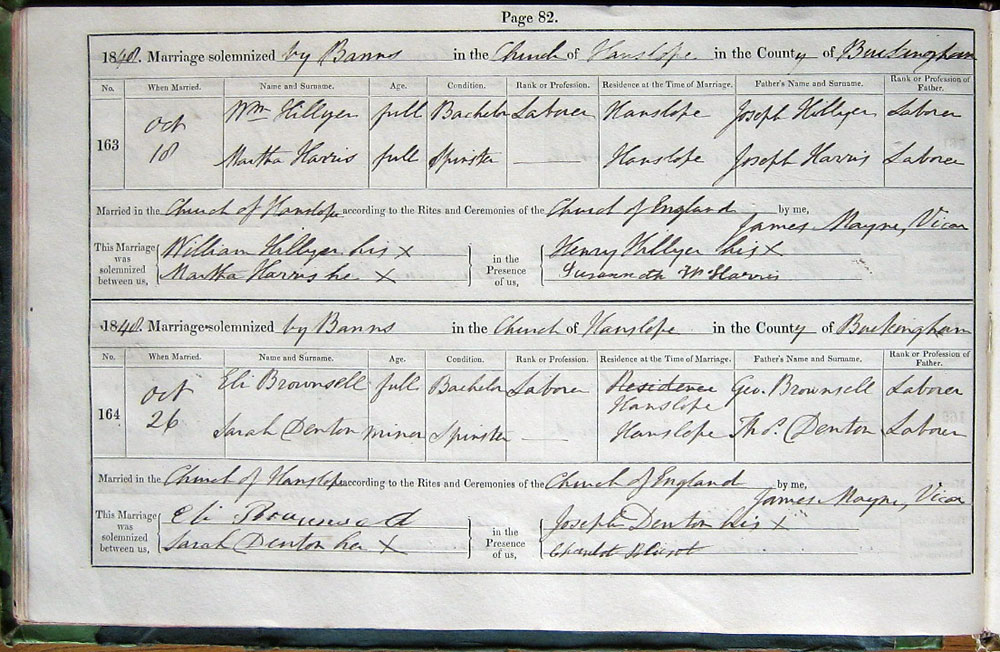 Page 82.
1848. Marriage solemnized by Banns in the Church of Hanslope in the County of Buckingham
No. When Married. Name and Surname. Age. Condition. Rank or Profession. Residence at the Time of Marriage. Father's Name and Surname. Rank or Profession of Father.
163 Oct 18 Wm Hillyer full Bachelor Laborer Hanslope Joseph Hillyer Laborer
Martha Harris full Spinster — Hanslope Joseph Harris Laborer
Married in the Church of Hanslope according to the Rites and Ceremonies of the Church of England by me,
James Mayne, Vicar
This Marriage was solemnized between us, William Hillyer his X in the Presence of us, Henry Hillyer his X
Martha Harris her X Harris
1848. Marriage solemnized by Banns in the Church of Hanslope in the County of Buckingham
No. When Married. Name and Surname. Age. Condition. Rank or Profession. Residence at the Time of Marriage. Father's Name and Surname. Rank or Profession of Father.
164 Oct 26 Eli Brownsell full Bachelor Laborer Residence Hanslope Geo. Brownsell Laborer
Sarah Denton minor Spinster — Hanslope Thos. Denton Laborer
Married in the Church of Hanslope according to the Rites and Ceremonies of the Church of England by me,
James Mayne, Vicar
This Marriage was solemnized between us, Eli in the Presence of us, Joseph Denton his X
Sarah Denton her X Charlot